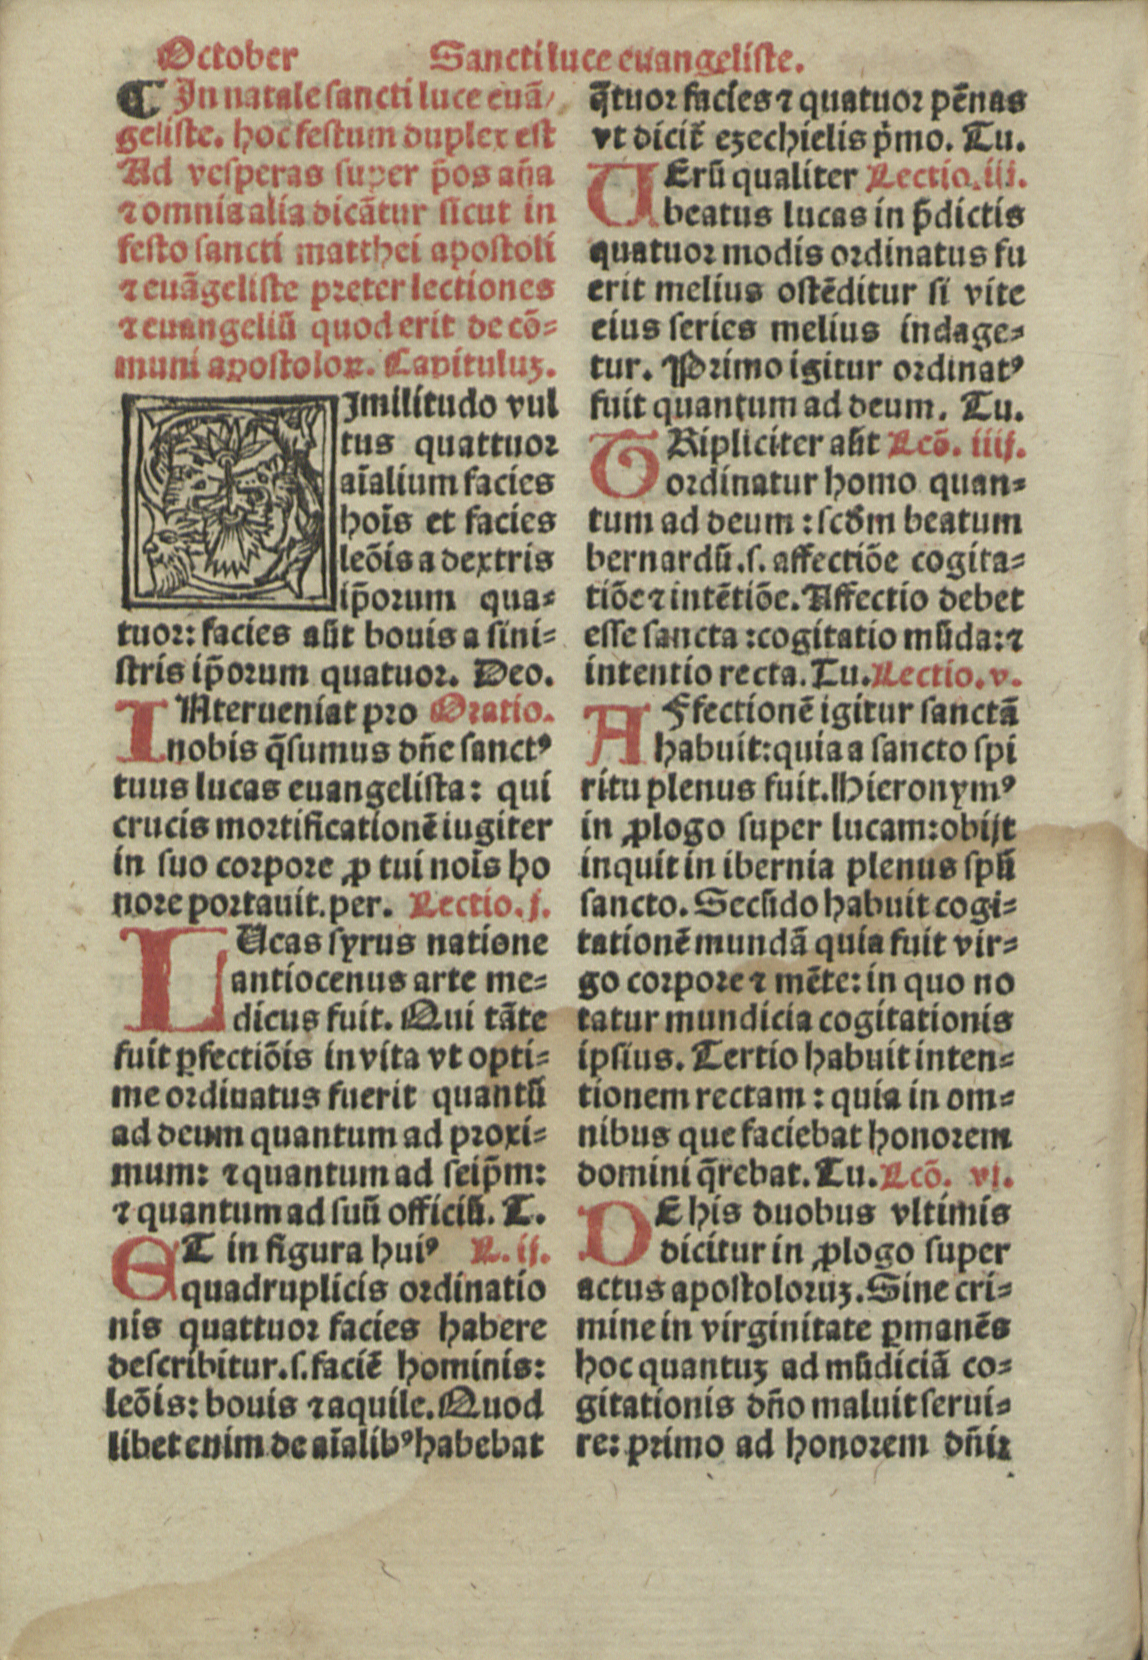 October Sancti luce euangeliste.
¶ In natale sancti luce euā/
geliste. hoc festum duplex est
Ad vesperas super p̄os an̄a
⁊ omnia alia dicātur sicut in
festo sancti matthei apostoli
⁊ euāgeliste preter lectiones
⁊ euangeliū quod erit de cō=
muni apostoloꝝ. Capituluꝫ.
Similitudo vul
tus quattuor
aīalium facies
hoīs et facies
leōis a dextris
ip̄orum qua=
tuor: facies aūt bouis a sini=
stris ip̄orum quatuor. Deo.
INterueniat pro Oratio.
nobis q̄sumus dn̄e sanctꝰ
tuus lucas euangelista: qui
crucis mortificationē iugiter
in suo corpore ꝓ tui noīs ho
nore portauit. per. Lectio. j.
LUcas syrus natione
antiocenus arte me=
dicus fuit. Qui tāte
fuit ꝑfectiōis in vita vt opti=
me ordinatus fuerit quantū
ad deum quantum ad proxi=
mum: ⁊ quantum ad seip̄m:
⁊ quantum ad suū officiū. T.
ET in figura huiꝰ L. ij.
quadruplicis ordinatio
nis quattuor facies habere
describitur. s. faciē hominis:
leōis: bouis ⁊ aquile. Quod
libet enim de aīalibꝰ habebat
q̄tuor facies ⁊ quatuor pēnas
vt dicit̄ ezechielis p̄mo. Tu.
UErū qualiter Lectio. iii.
beatus lucas in p̄dictis
quatuor modis ordinatus fu
erit melius ostēditur si vite
eius series melius indage=
tur. Primo igitur ordinatꝰ
fuit quantum ad deum. Tu.
TRipliciter aūt Lcō. iiij.
ordinatur homo quan=
tum ad deum: scd̄m beatum
bernardū. s. affectiōe cogita=
tiōe ⁊ intētiōe. Affectio debet
esse sancta: cogitatio mūda: ⁊
intentio recta. Tu. Lectio. v.
AFfectionē igitur sanctā
habuit: quia a sancto spi
ritu plenus fuit. Hieronymꝰ
in ꝓlogo super lucam: obijt
inquit in ibernia plenus spū
sancto. Secūdo habuit cogi=
tationē mundā quia fuit vir=
go corpore ⁊ mēte: in quo no
tatur mundicia cogitationis
ipsius. Tertio habuit inten=
tionem rectam: quia in om=
nibus que faciebat honorem
domini q̄rebat. Tu. Lcō. vj.
DE his duobus vltimis
dicitur in ꝓlogo super
actus apostoloruꝫ. Sine cri=
mine in virginitate ꝑmanēs
hoc quantuꝫ ad mūdiciā co=
gitationis dn̄o maluit serui=
re: primo ad honorem dn̄iꝛ